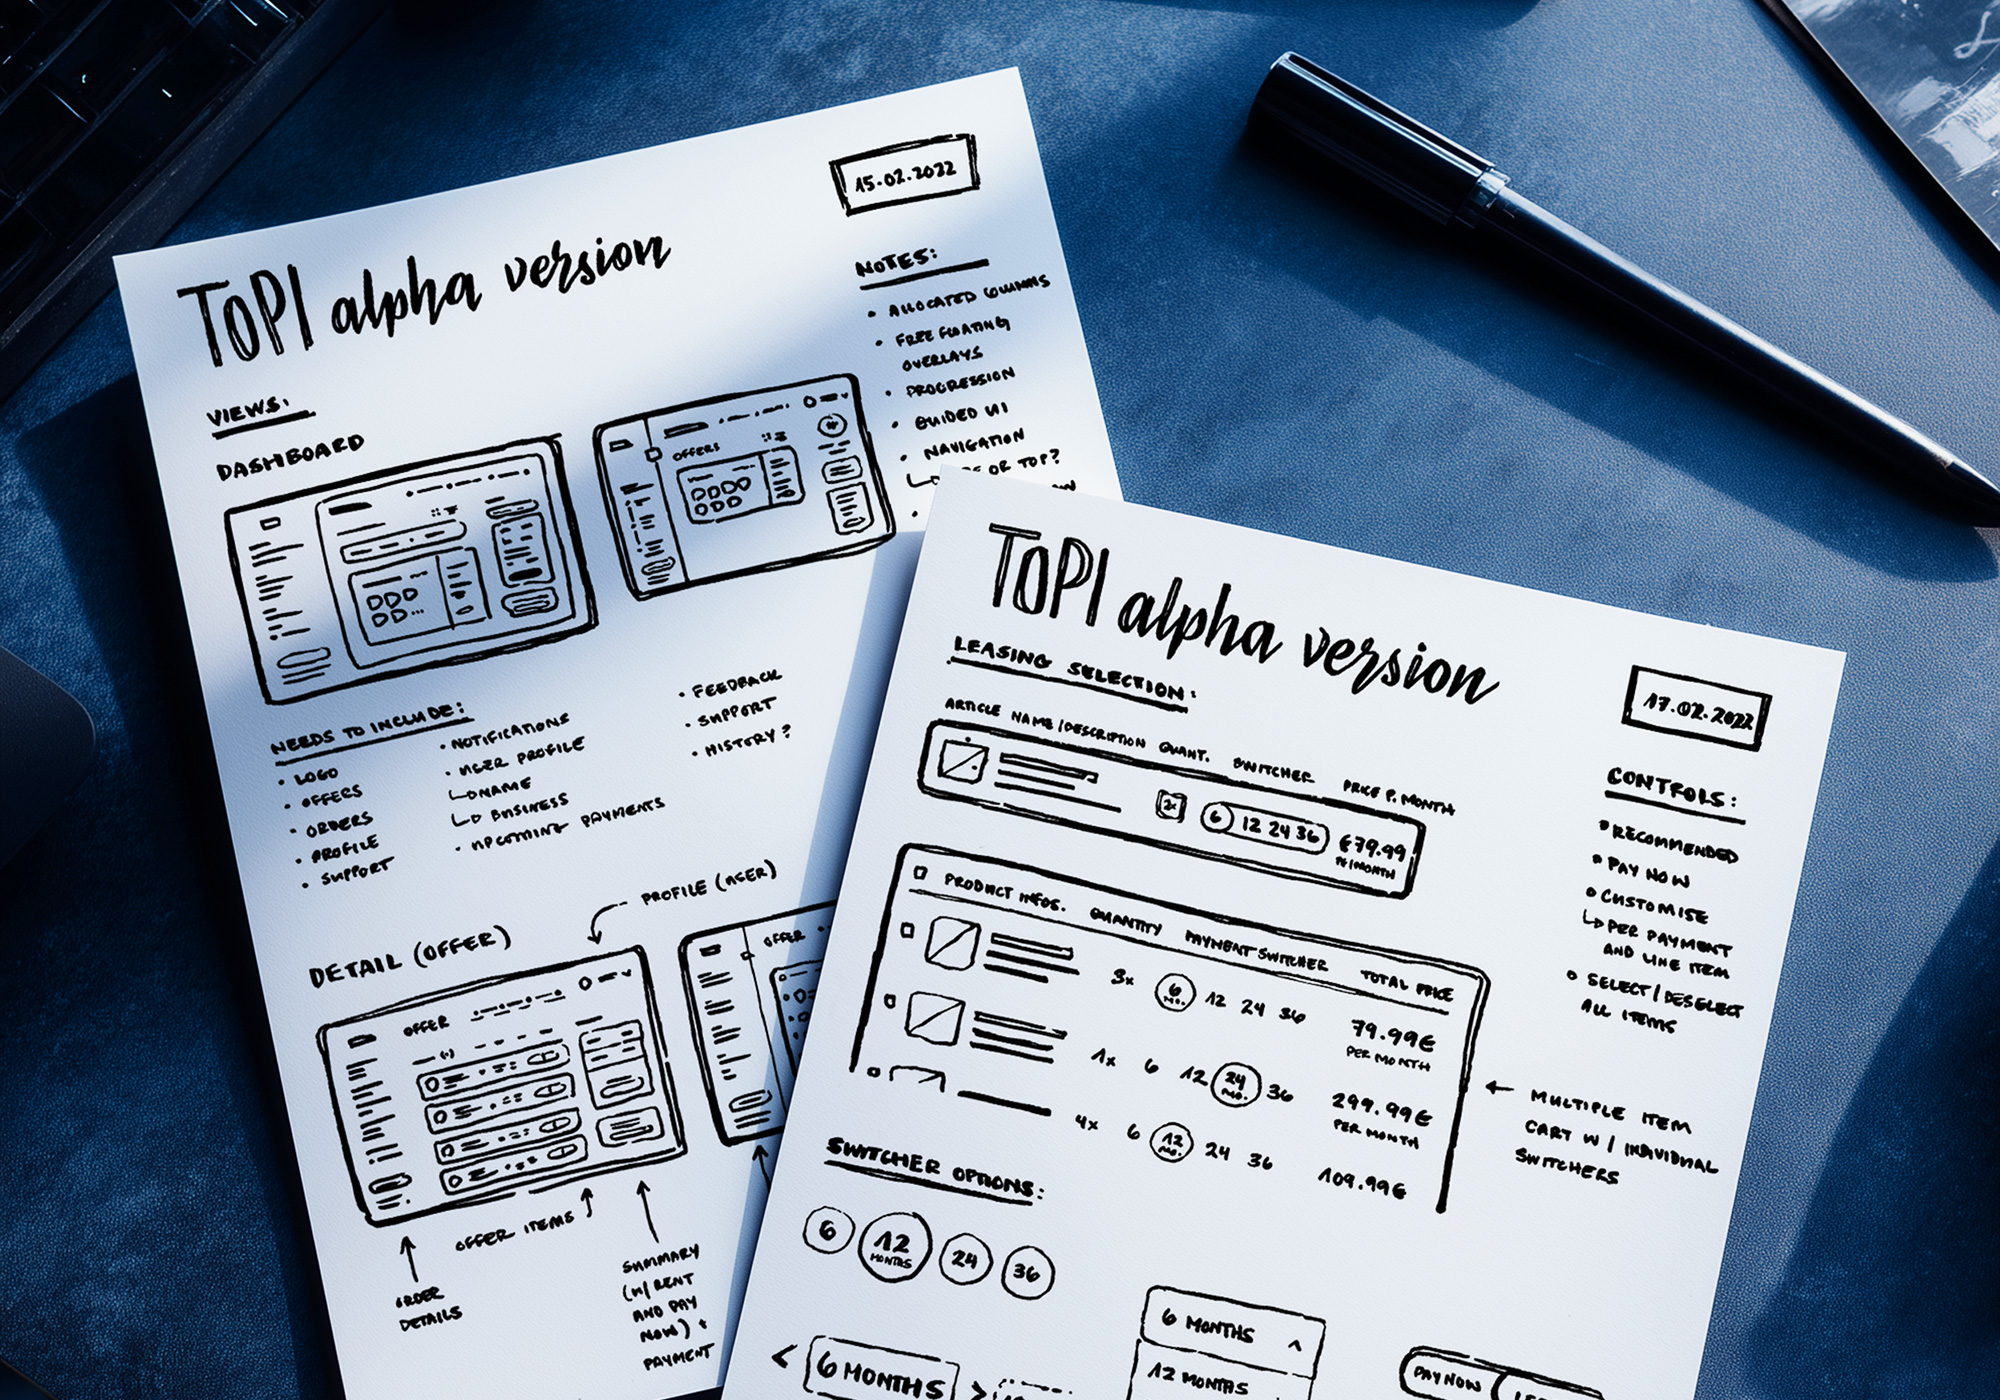 15.02.2022
TOPI alpha version
NOTES:
• ALLOCATED COLUMNS
• FREE FLOATING
OVERLAYS
• PROGRESSION
• GUIDED UI
• NAVIGATION
OR TOP?
VIEWS:
DASHBOARD
OFFERS
NEEDS TO INCLUDE:
• LOGO
• OFFERS
• ORDERS
• PROFILE
• SUPPORT
• NOTIFICATIONS
• USER PROFILE
↳ NAME
↳ BUSINESS
• UPCOMING PAYMENTS
• FEEDBACK
• SUPPORT
• HISTORY?
PROFILE (USER)
DETAIL (OFFER)
OFFER
OFFER
OFFER ITEMS
ORDER
DETAILS
SUMMARY
(W/ RENT
AND PAY
NOW) +
PAYMENT
TOPI alpha version
17.02.2022
LEASING SELECTION:
ARTICLE NAME/DESCRIPTION QUANT. SWITCHER PRICE P. MONTH
2x 6 12 24 36 €79.99
P/MONTH
PRODUCT INFOS. QUANTITY PAYMENT SWITCHER TOTAL PRICE
3x 6 MO. 12 24 36 79.99€
PER MONTH
1x 6 12 24 MO. 36 299.99€
PER MONTH
4x 6 12 MO. 24 36 109.99€
CONTROLS:
• RECOMMENDED
• PAY NOW
• CUSTOMISE
↳ PER PAYMENT
AND LINE ITEM
• SELECT/DESELECT
ALL ITEMS
← MULTIPLE ITEM
CART W/ INDIVIDUAL
SWITCHERS
SWITCHER OPTIONS:
6 12 MONTHS 24 36
< 6 MONTHS >
6 MONTHS ^
12 MONTHS
PAY NOW